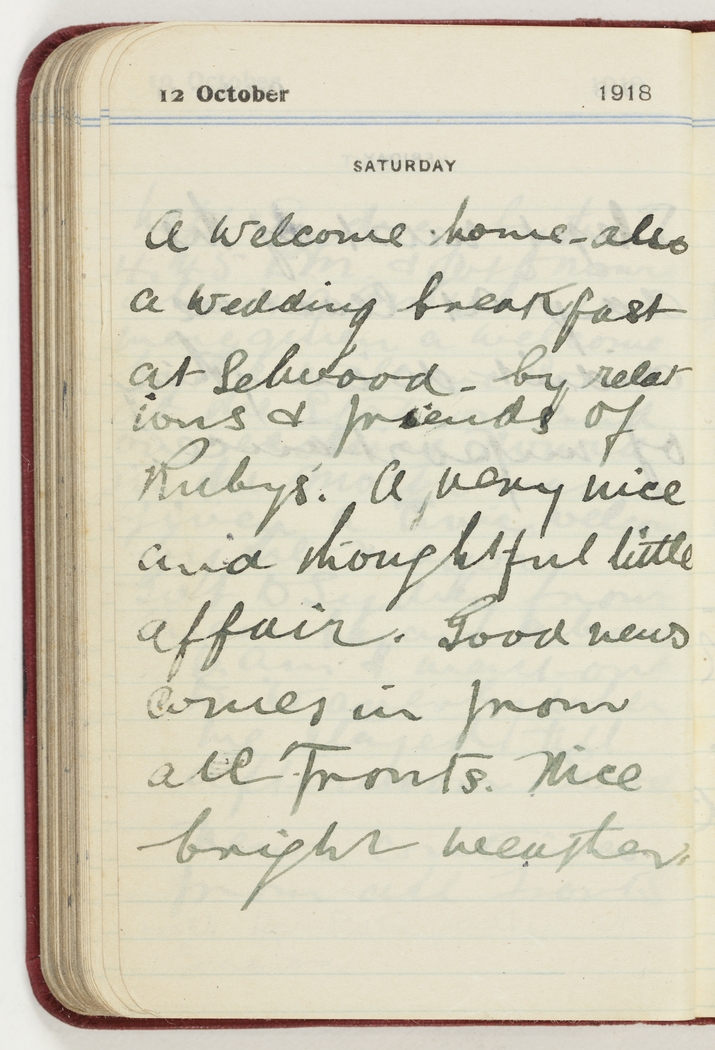 12 October 1918
SATURDAY
A welcome home - also
a wedding breakfast
at Selwood - by relat
ions & friends of
Rubys. A very nice
and thoughtful little
affair. Good news
comes in from
all Fronts. Nice
bright weather.